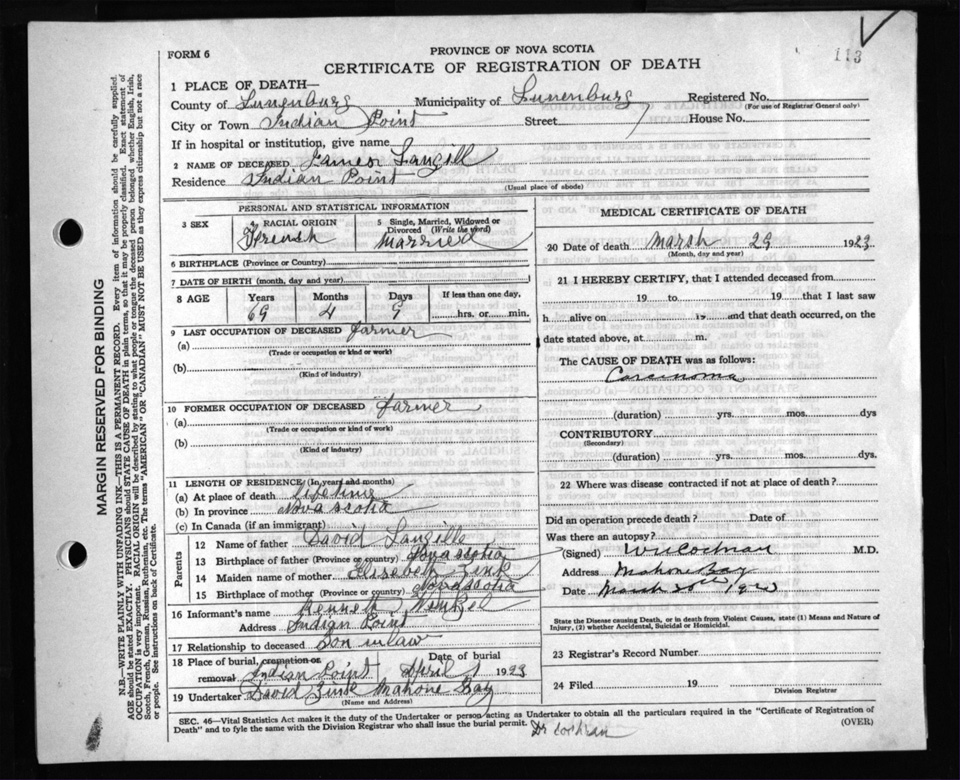 113
FORM 6
PROVINCE OF NOVA SCOTIA
CERTIFICATE OF REGISTRATION OF DEATH
1 PLACE OF DEATH—
County of Lunenburg Municipality of Lunenburg Registered No.
(For use of Registrar General only)
City or Town Indian Point Street House No.
If in hospital or institution, give name
2 NAME OF DECEASED Langill
Residence Indian Point
(Usual place of abode)
PERSONAL AND STATISTICAL INFORMATION
3 SEX 4 RACIAL ORIGIN 5 Single, Married, Widowed or Divorced (Write the word)
French Married
6 BIRTHPLACE (Province or Country)
7 DATE OF BIRTH (month, day and year)
8 AGE Years Months Days If less than one day,
69 4 9 hrs. or min.
9 LAST OCCUPATION OF DECEASED Farmer
(a)
(Trade or occupation or kind or work)
(b)
(Kind of industry)
10 FORMER OCCUPATION OF DECEASED Farmer
(a)
(Trade or occupation or kind of work)
(b)
(Kind of industry)
11 LENGTH OF RESIDENCE (In years and months)
(a) At place of death lifetime
(b) In province Nova scotia
(c) In Canada (if an immigrant)
Parents
12 Name of father David Langille
13 Birthplace of father (Province or country) Nova scotia
14 Maiden name of mother Elizabeth Zink
15 Birthplace of mother (Province or country) Nova scotia
16 Informant's name Kenneth
Address Indian Point
17 Relationship to deceased Son in law
18 Place of burial, cremation or removal Date of burial
Indian Point April 1 1923
19 Undertaker David Zink Mahone Bay
(Name and Address)
MEDICAL CERTIFICATE OF DEATH
20 Date of death Marsh 29 1923
(Month, day and year)
21 I HEREBY CERTIFY, that I attended deceased from
19 to 19 that I last saw
h alive on 19 and that death occurred, on
date stated above, at m.
The CAUSE OF DEATH was as follows:
Carcinoma
(duration) yrs. mos. dys
CONTRIBUTORY
(Secondary)
(duration) yrs. mos. dys.
22 Where was disease contracted if not at place of death?
Did an operation precede death? Date of
Was there an autopsy?
(Signed) Cochran M.D.
Address Mahone Bay
Date March 1923
State the Disease causing Death, or in death from Violent Causes, state (1) Means and Nature of
Injury, (2) whether Accidental, Suicidal or Homicidal.
23 Registrar's Record Number
24 Filed 19
Division Registrar
SEC. 46—Vital Statistics Act makes it the duty of the Undertaker or person acting as Undertaker to obtain all the particulars required in the "Certificate of Registration of
Death" and to fyle the same with the Division Registrar who shall issue the burial permit. (OVER)
Dr Cochran
MARGIN RESERVED FOR BINDING
N.B.—WRITE PLAINLY WITH UNFADING INK—THIS IS A PERMANENT RECORD. Every item of information should be carefully supplied.
AGE should be stated EXACTLY. PHYSICIANS should STATE CAUSE OF DEATH in plain terms, so that it may be properly classified. Exact statement of
OCCUPATION is very important. RACIAL ORIGIN will be described by stating to what people or tongue the deceased person belonged whether English, Irish,
Scotch, French, German, Russian, Ruthenian, etc. The terms "AMERICAN" OR "CANADIAN" MUST NOT BE USED as they express citizenship but not a race
or people. See instructions on back of Certificate.